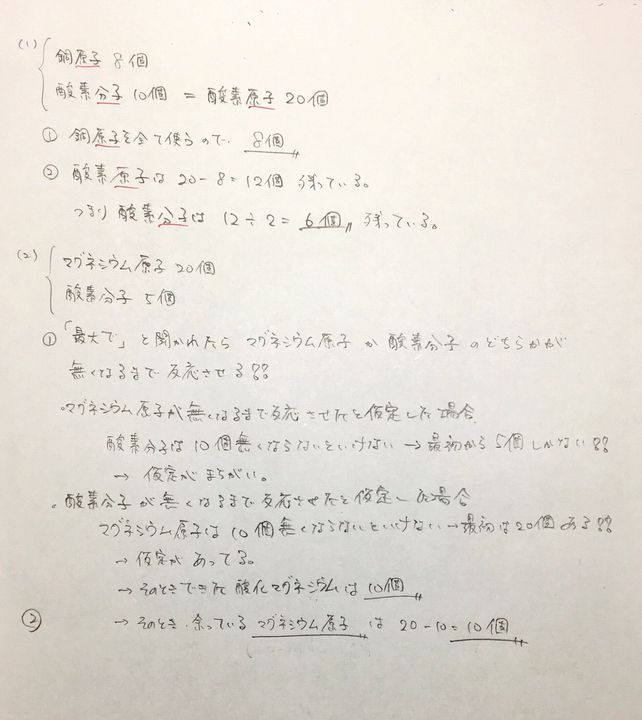 (1) 銅原子 8個
酸素分子 10個 = 酸素原子 20個
① 銅原子を全て使うので、8個
② 酸素原子は 20-8=12個 残っている。
つまり 酸素分子は 12÷2=6個 残っている。
(2) マグネシウム原子 20個
酸素分子 5個
① 「最大で」と聞かれたら マグネシウム原子か 酸素分子 のどちらかが
無くなるまで 反応させる??
・マグネシウム原子が無くなるまで反応させたと仮定した場合
酸素分子は 10個無くならないといけない → 最初から 5個しかない??
→ 仮定がまちがい。
・酸素分子が無くなるまで反応させたと仮定した場合
マグネシウム原子は 10個無くならないといけない → 最初は20個ある??
→ 仮定が あってる。
→ そのときできた 酸化マグネシウムは 10個
② → そのとき、余っている マグネシウム原子 は 20-10=10個